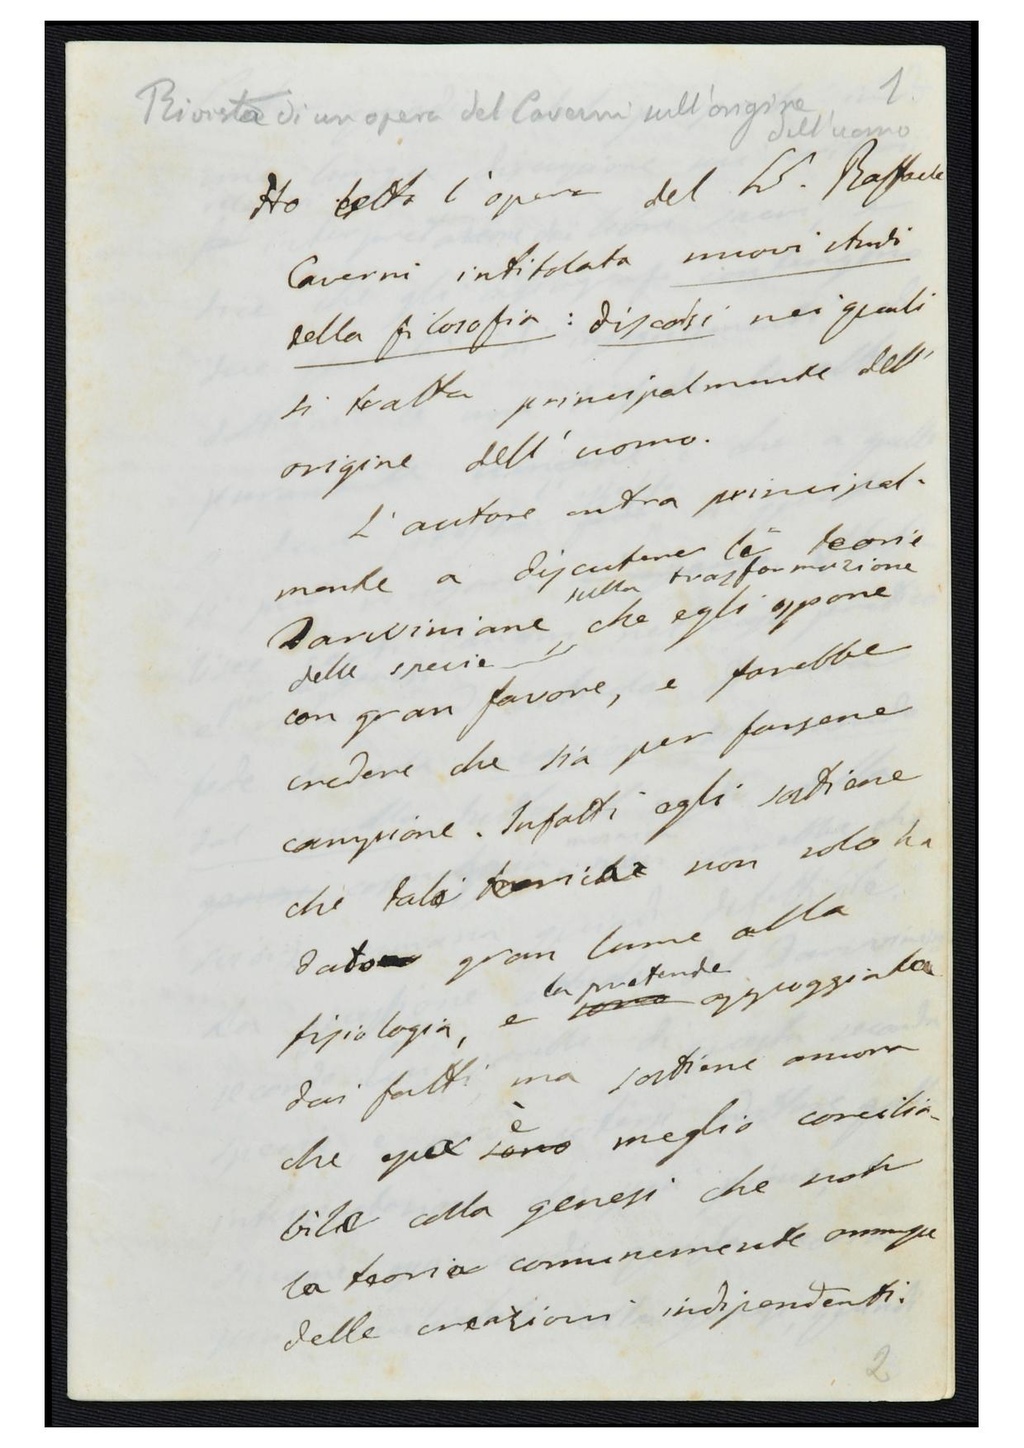 1.
Rivista di un opera del Caverni sull'origine
dell'uomo
Ho letta l'opera del Raffaele
Caverni intitolata nuovi studi
della filosofia: discorsi nei quali
si tratta principalmente dell'
origine dell'uomo.
L'autore entra principal-
mente a discutere le teorie
sulla trasformazione
Darwiniane, che egli oppone
delle specie
con gran favore, e farebbe
credere che sia per farsene
campione. Infatti egli sostiene
che tale teorica non solo ha
dato gran lume alla
la pretende
fisiologia, e sono appoggiata
dai fatti ma sostiene ancora
è
che essa sono meglio concilia-
bile colla genesi che non
la teoria comunemente ammessa
delle creazioni indipendenti.
2